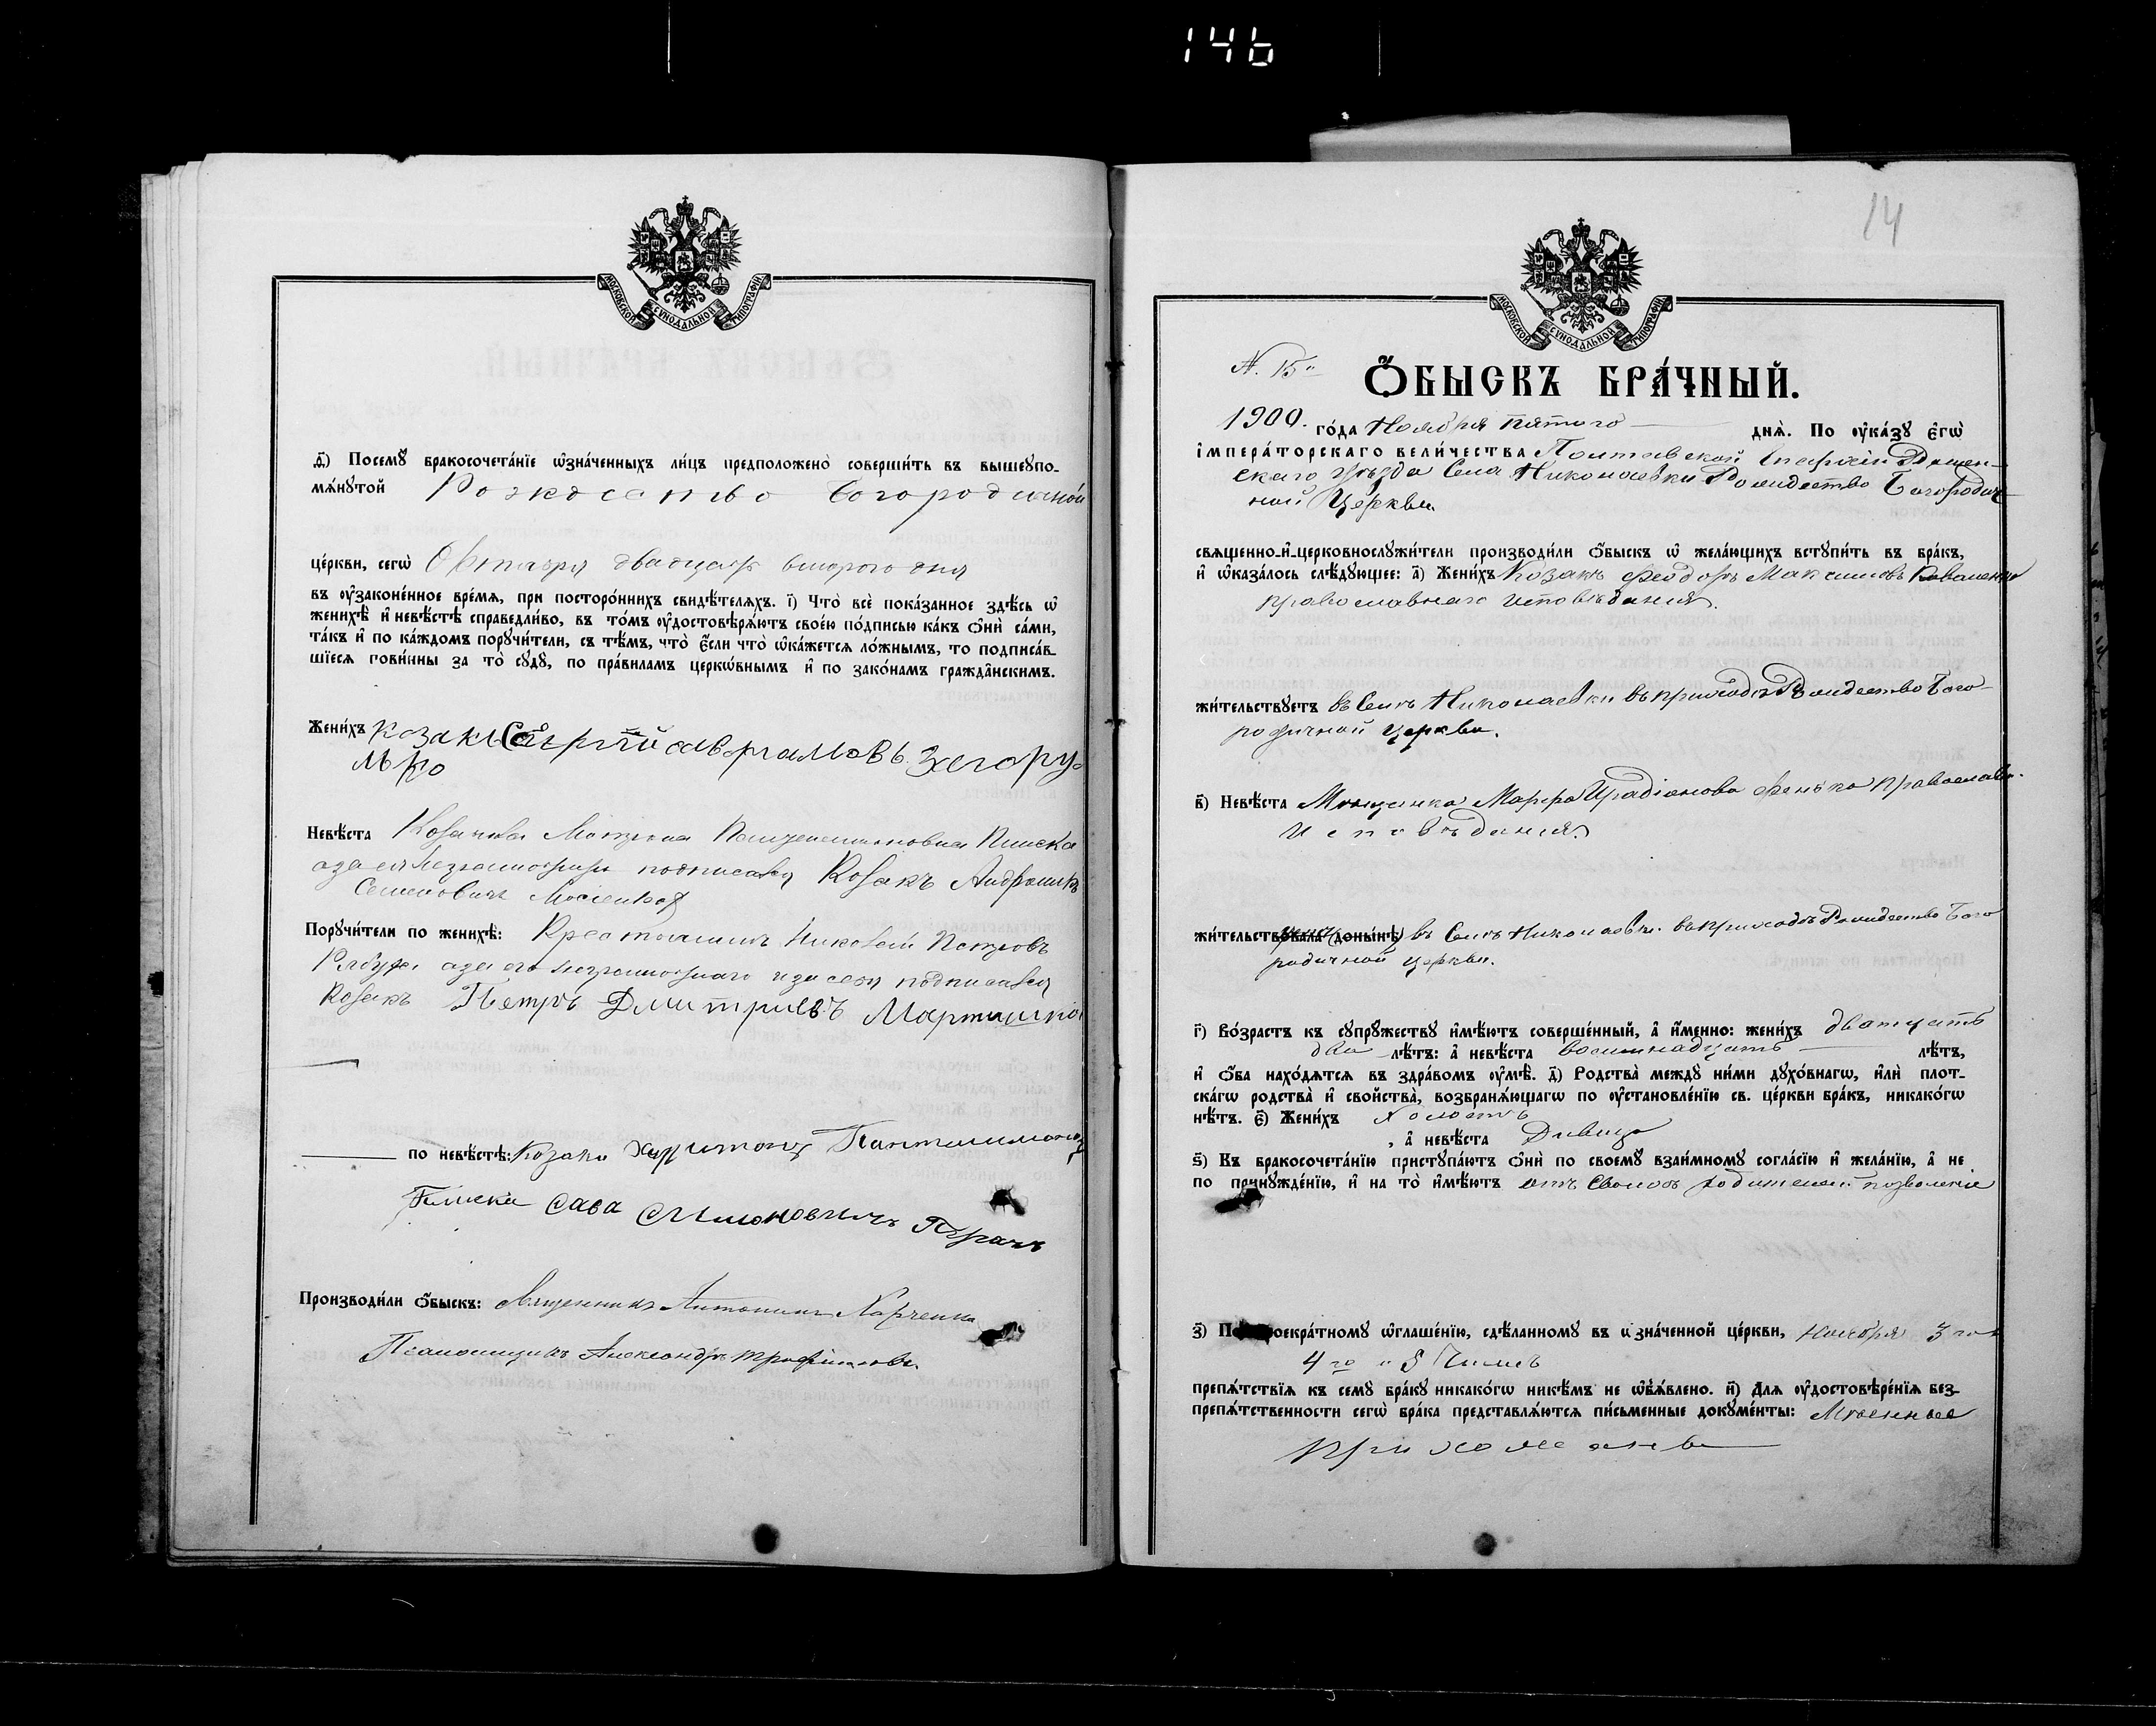 146
МОСКОВСКОЙ СѴНОДАЛЬНОЙ ТИПОГРАФІИ
ѳ҃) Посемꙋ бракосочета́нїе ѡ҆зна́ченныхъ ли́цъ предположено̀ соверши́ть въ вышеꙋпо-
мѧ́нꙋтой Рождество Богородичной
це́ркви, сегѡ̀ Октября двадцать второго дня
въ ᲂу҆зако́ненное вре́мѧ, при посторо́ннихъ свидѣ́телѧхъ. і҃) Что̀ всѐ пока́занное здѣ́сь ѡ҆
женихѣ̀ и҆ невѣ́стѣ справедли́во, въ то́мъ ᲂу҆достовѣрѧ́ютъ свое́ю по́дписью ка́къ ѻ҆нѝ са́ми,
та́къ и҆ по ка́ждомъ порꙋчи́тели, съ тѣ́мъ, что̀ є҆́сли что̀ ѡ҆ка́жетсѧ ло́жнымъ, то подписа́в-
шїесѧ пови́нны за то̀ сꙋдꙋ̀, по пра́виламъ церкѡ́внымъ и҆ по зако́намъ гражда̑нскимъ.
Жени́хъ козакъ Сергій Аврамовъ Загору
лько
Невѣ́ста Козачка Пантелимоновна Плиска
а за ея неграмотную подписался Козакъ
Семеновичъ
Порꙋчи́тели по женихѣ̀: Крестьянинъ Николай Петровъ
а за его неграмотнаго и за себя подписался
Козакъ Петръ Дмитріевъ
по невѣ́стѣ: Козаки Харитонъ Пантилимонов
Плиска Сава Симоновичъ
Производи́ли ѻ҆́быскъ: Священникъ Антоній Харченко
Псаломщикъ Александръ Трофимовъ
14
МОСКОВСКОЙ СѴНОДАЛЬНОЙ ТИПОГРАФІИ
№ 15
Ѻ҆́БЫСКЪ БРА́ЧНЫЙ.
1900. го́да Ноября пятого днѧ̀. По ᲂу҆ка́зꙋ є҆гѡ̀
і҆мпера́торскаго вели́чества Полтавской Епархіи Ромен-
скаго уѣзда Села Николаевки Рождество Богородич
ной Церкви.
свѧщенно-и҆-церковнослꙋжи́тели производи́ли ѻ҆́быскъ ѡ҆ жела́ющихъ встꙋпи́ть въ бра́къ,
и҆ ѡ҆каза́лось слѣ́дꙋющее: а҃) Жени́хъ Козакъ Феодоръ Максимовъ Коваленко
православнаго исповѣданія.
жи́тельствꙋетъ въ Селѣ Николаевки въ приходѣ Рождество Бого-
родичной церкви.
в҃) Невѣ́ста Мѣщанка Марфа Иродіонова Фенько Православн.
Исповѣданія.
жи́тельствова́ла (доны́нѣ) въ Селѣ Николаевки въ приходѣ Рождество Бого
родичной церкви.
г҃) Во́зрастъ къ сꙋпрꙋ́жествꙋ и҆мѣ́ютъ соверше́нный, а҆ и҆́менно: жени́хъ двадцать
два лѣ́тъ: а҆ невѣ́ста восемнадцать лѣ́тъ,
и҆ ѻ҆́ба нахо́дѧтсѧ въ здра́вомъ ᲂу҆мѣ̀. д҃) Родства̀ междꙋ̀ ни́ми дꙋхо́внагѡ, и҆лѝ плот-
ска́гѡ родства̀ и҆ свойства̀, возбранѧ́ющагѡ по ᲂу҆становле́нїю св. це́ркви бра́къ, никако́гѡ
нѣ́тъ. є҃) Жени́хъ холостъ
, а҆ невѣ́ста Дѣвица
ѕ҃) Къ бракосочета́нїю пристꙋпа́ютъ ѻ҆нѝ по своемꙋ̀ взаи́мномꙋ согла́сїю и҆ жела́нїю, а҆ не
по принꙋжде́нїю, и҆ на то̀ и҆мѣ́ютъ отъ Своихъ родителей позволеніе
з҃) По троекра́тномꙋ ѡ҆глаше́нїю, сдѣ́ланномꙋ въ ѡ҆зна́ченной це́ркви, Ноября 3 го
4 го и 5 Числъ
препѧ́тствїѧ къ семꙋ̀ бра́кꙋ никако́гѡ никѣ́мъ не ѡ҆б̾ѧ́влено. и҃) Длѧ ᲂу҆достовѣре́нїѧ без-
препѧ́тственности сегѡ̀ бра́ка представлѧ́ютсѧ пи́сьменные докꙋме́нты: Мѣстные
прихожане